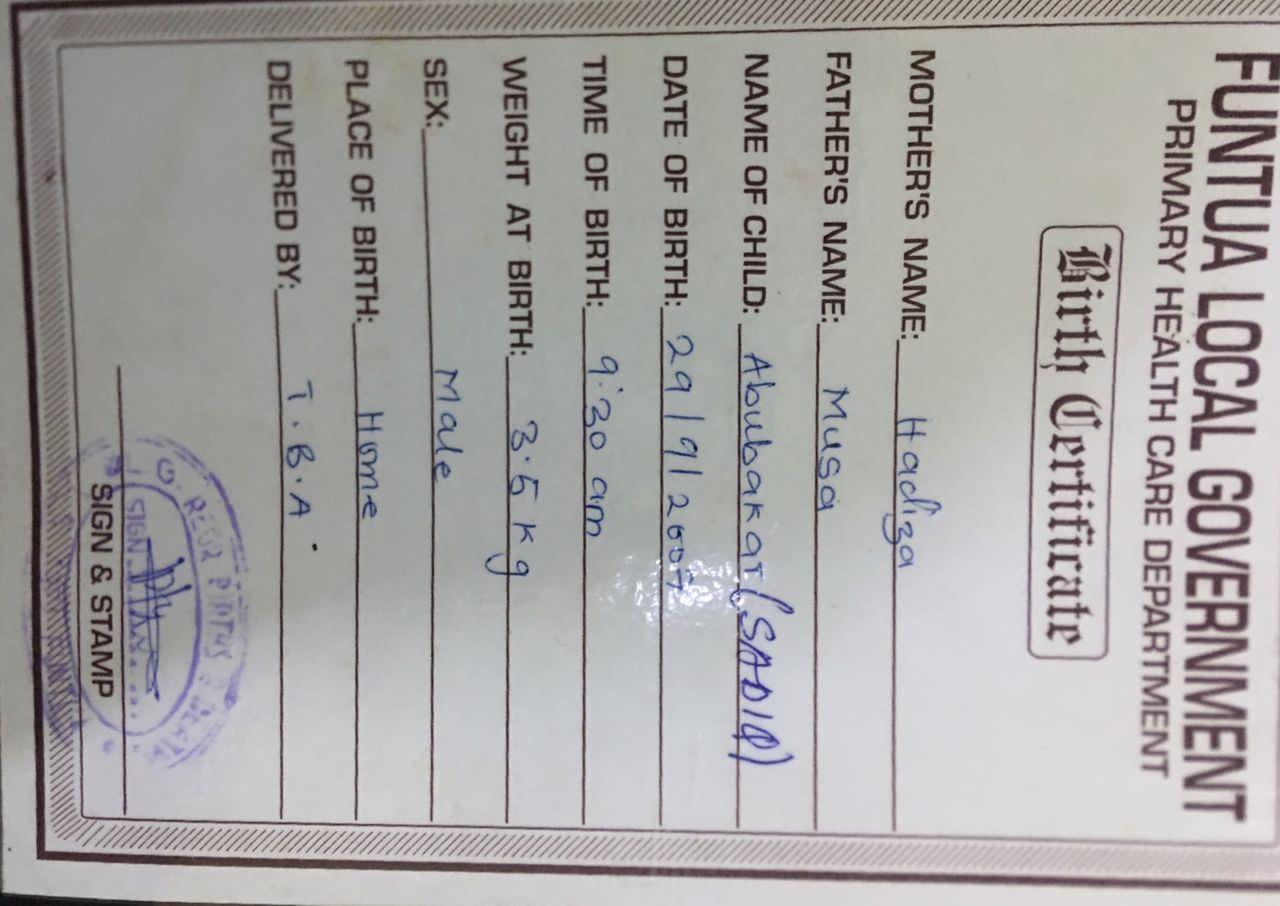 FUNTUA LOCAL GOVERNMENT
PRIMARY HEALTH CARE DEPARTMENT
Birth Certificate
MOTHER'S NAME: Hadiza
FATHER'S NAME: Musa
NAME OF CHILD: Abubakar (SADIQ)
DATE OF BIRTH: 29/9/2007
TIME OF BIRTH: 9:30 am
WEIGHT AT BIRTH: 3.5 kg
SEX: Male
PLACE OF BIRTH: Home
DELIVERED BY: T.B.A
SIGN
SIGN & STAMP